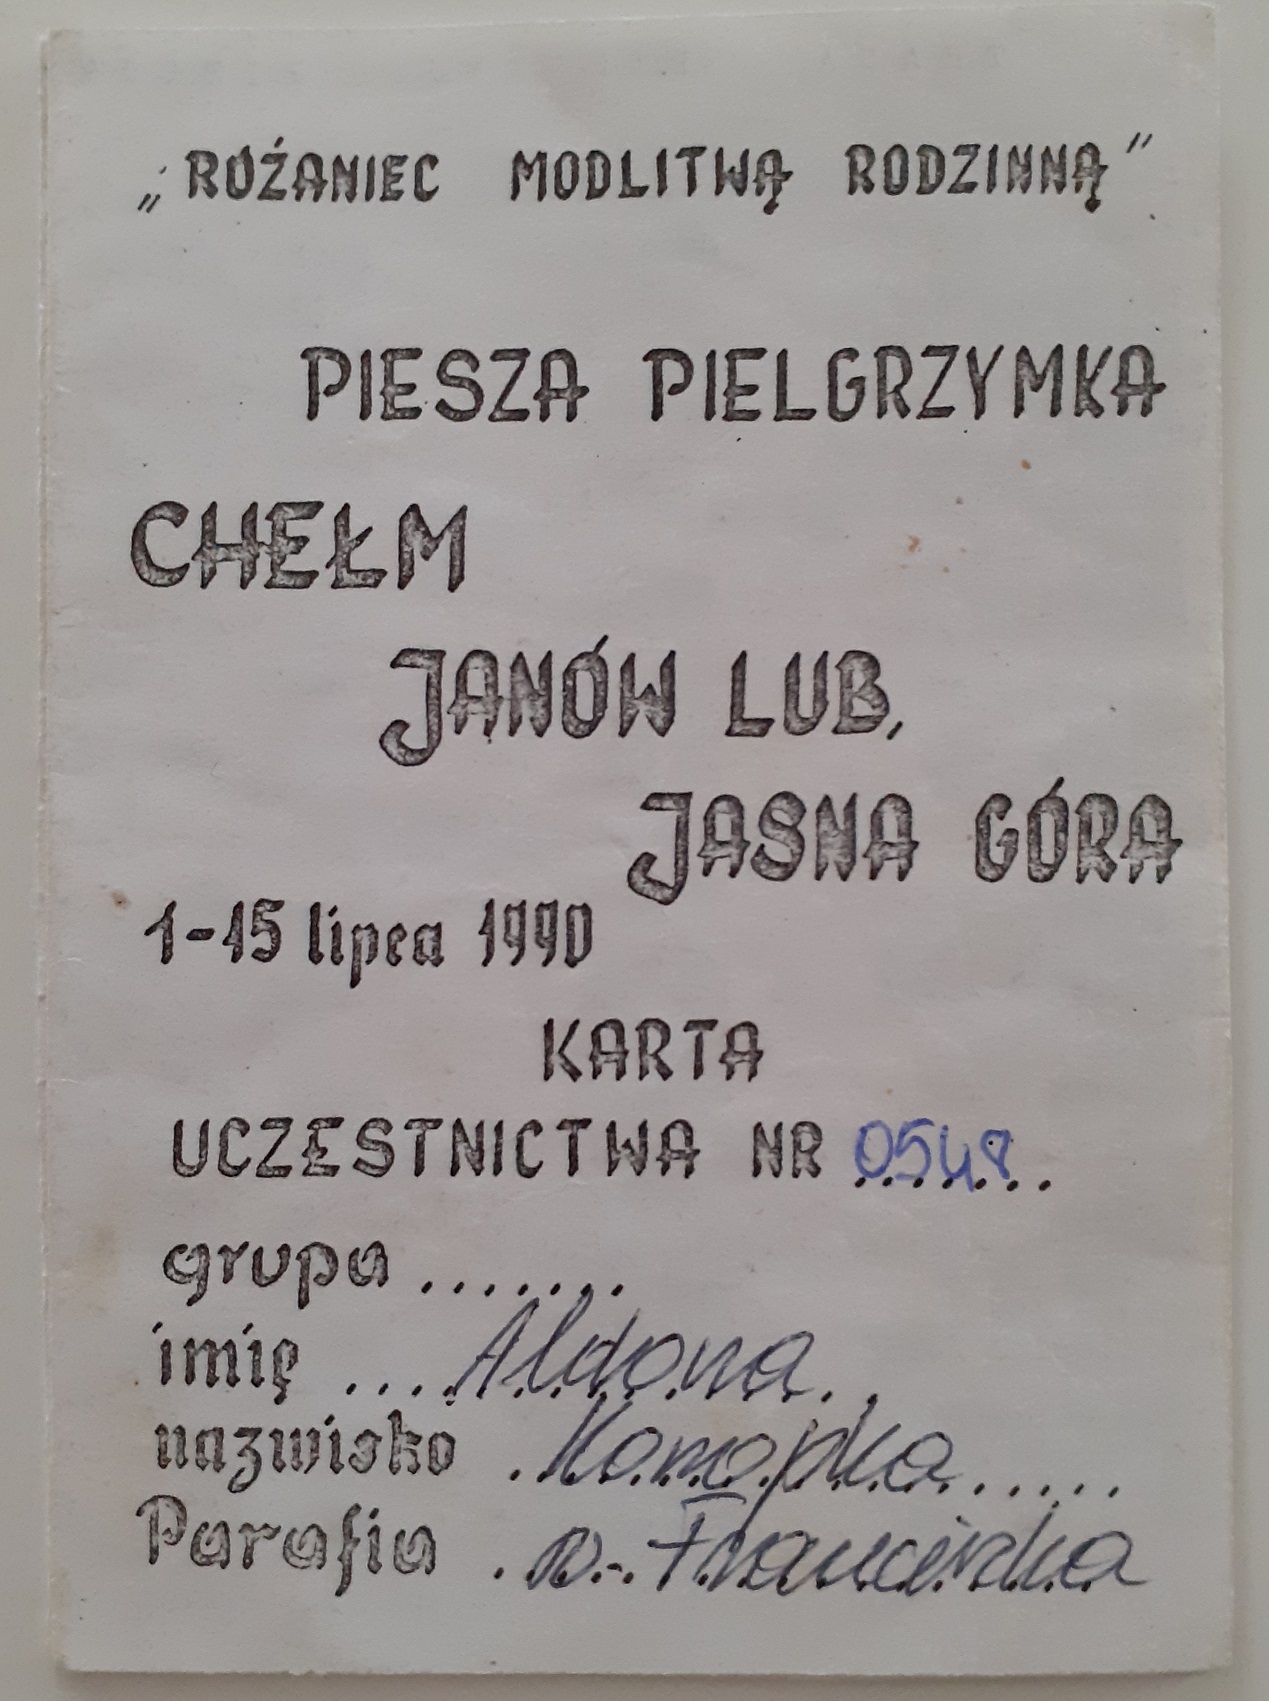 „RÓŻANIEC MODLITWĄ RODZINNĄ”
PIESZA PIELGRZYMKA
CHEŁM
JANÓW LUB.
JASNA GÓRA
1-15 lipca 1990
KARTA
UCZESTNICTWA NR 0548
grupa .......
imię .... Aldona
nazwisko . Konopka .....
Parafia . św. Franciszka